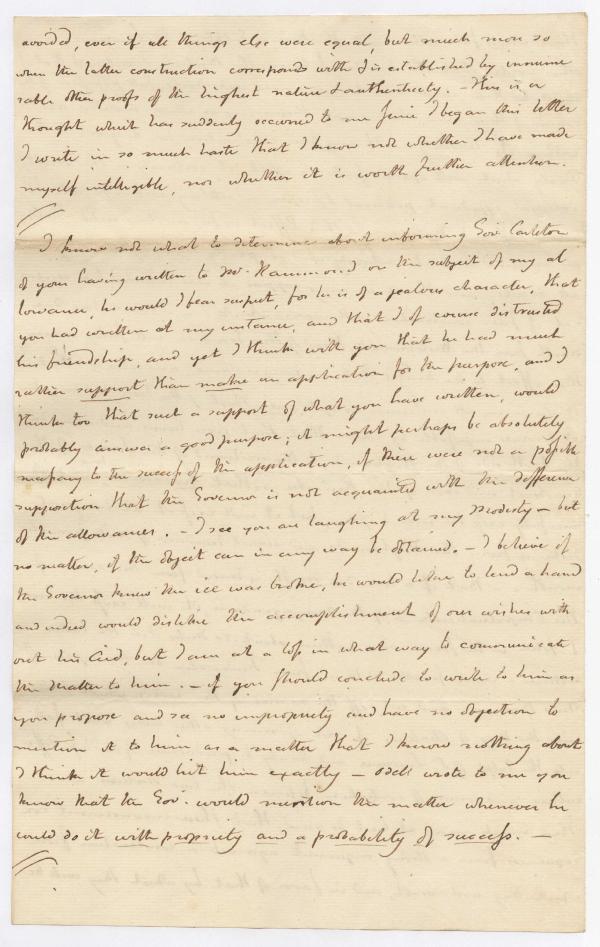 avoided, even if all things else were equal, but much more so
when the latter construction corresponds with & is established by innume
rable other proofs of the highest nature & authenticity. – This is a
thought which has suddenly occurred to me since I began this letter
I write in so much haste that I know not whether I have made
myself intelligible, nor whether it is worth further attention.
I know not what to determine about informing Gov.r Carleton
of your having written to Mr. Hammond on the subject of my al
lowance, he would I fear suspect, for he is of a jealous character, that
you had written at my instance, and that I of course distrusted
his friendship, and yet I think with you that he had much
rather support than make an application for the purpose, and I
think too that such a support of what you have written, would
probably answer a good purpose; it might perhaps be absolutely
necessary to the success of the application, if there were not a possible
supposition that the Governor is not acquainted with the difference
of the allowances. – I see you are laughing at my Modesty – but
no matter, if the object can in any way be obtained. – I believe if
the Governor knew the ice was broke, he would like to lend a hand
and indeed would dislike the accomplishment of our wishes with
out his Aid, but I am at a loss in what way to communicate
the Matter to him. – if you should conclude to write to him as
you propose and see no impropriety and have no objection to
mention it to him as a matter that I know nothing about
I think it would hit him exactly – Odell wrote to me you
know that the Gov.r would mention the matter whenever he
could do it with propriety and a probability of success. –